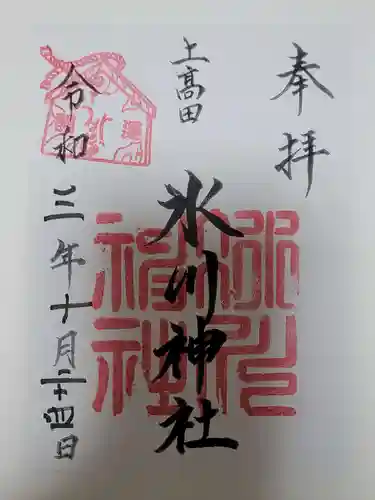 奉拝
上高田
氷川神社
令和三年十月二十四日
氷川神社